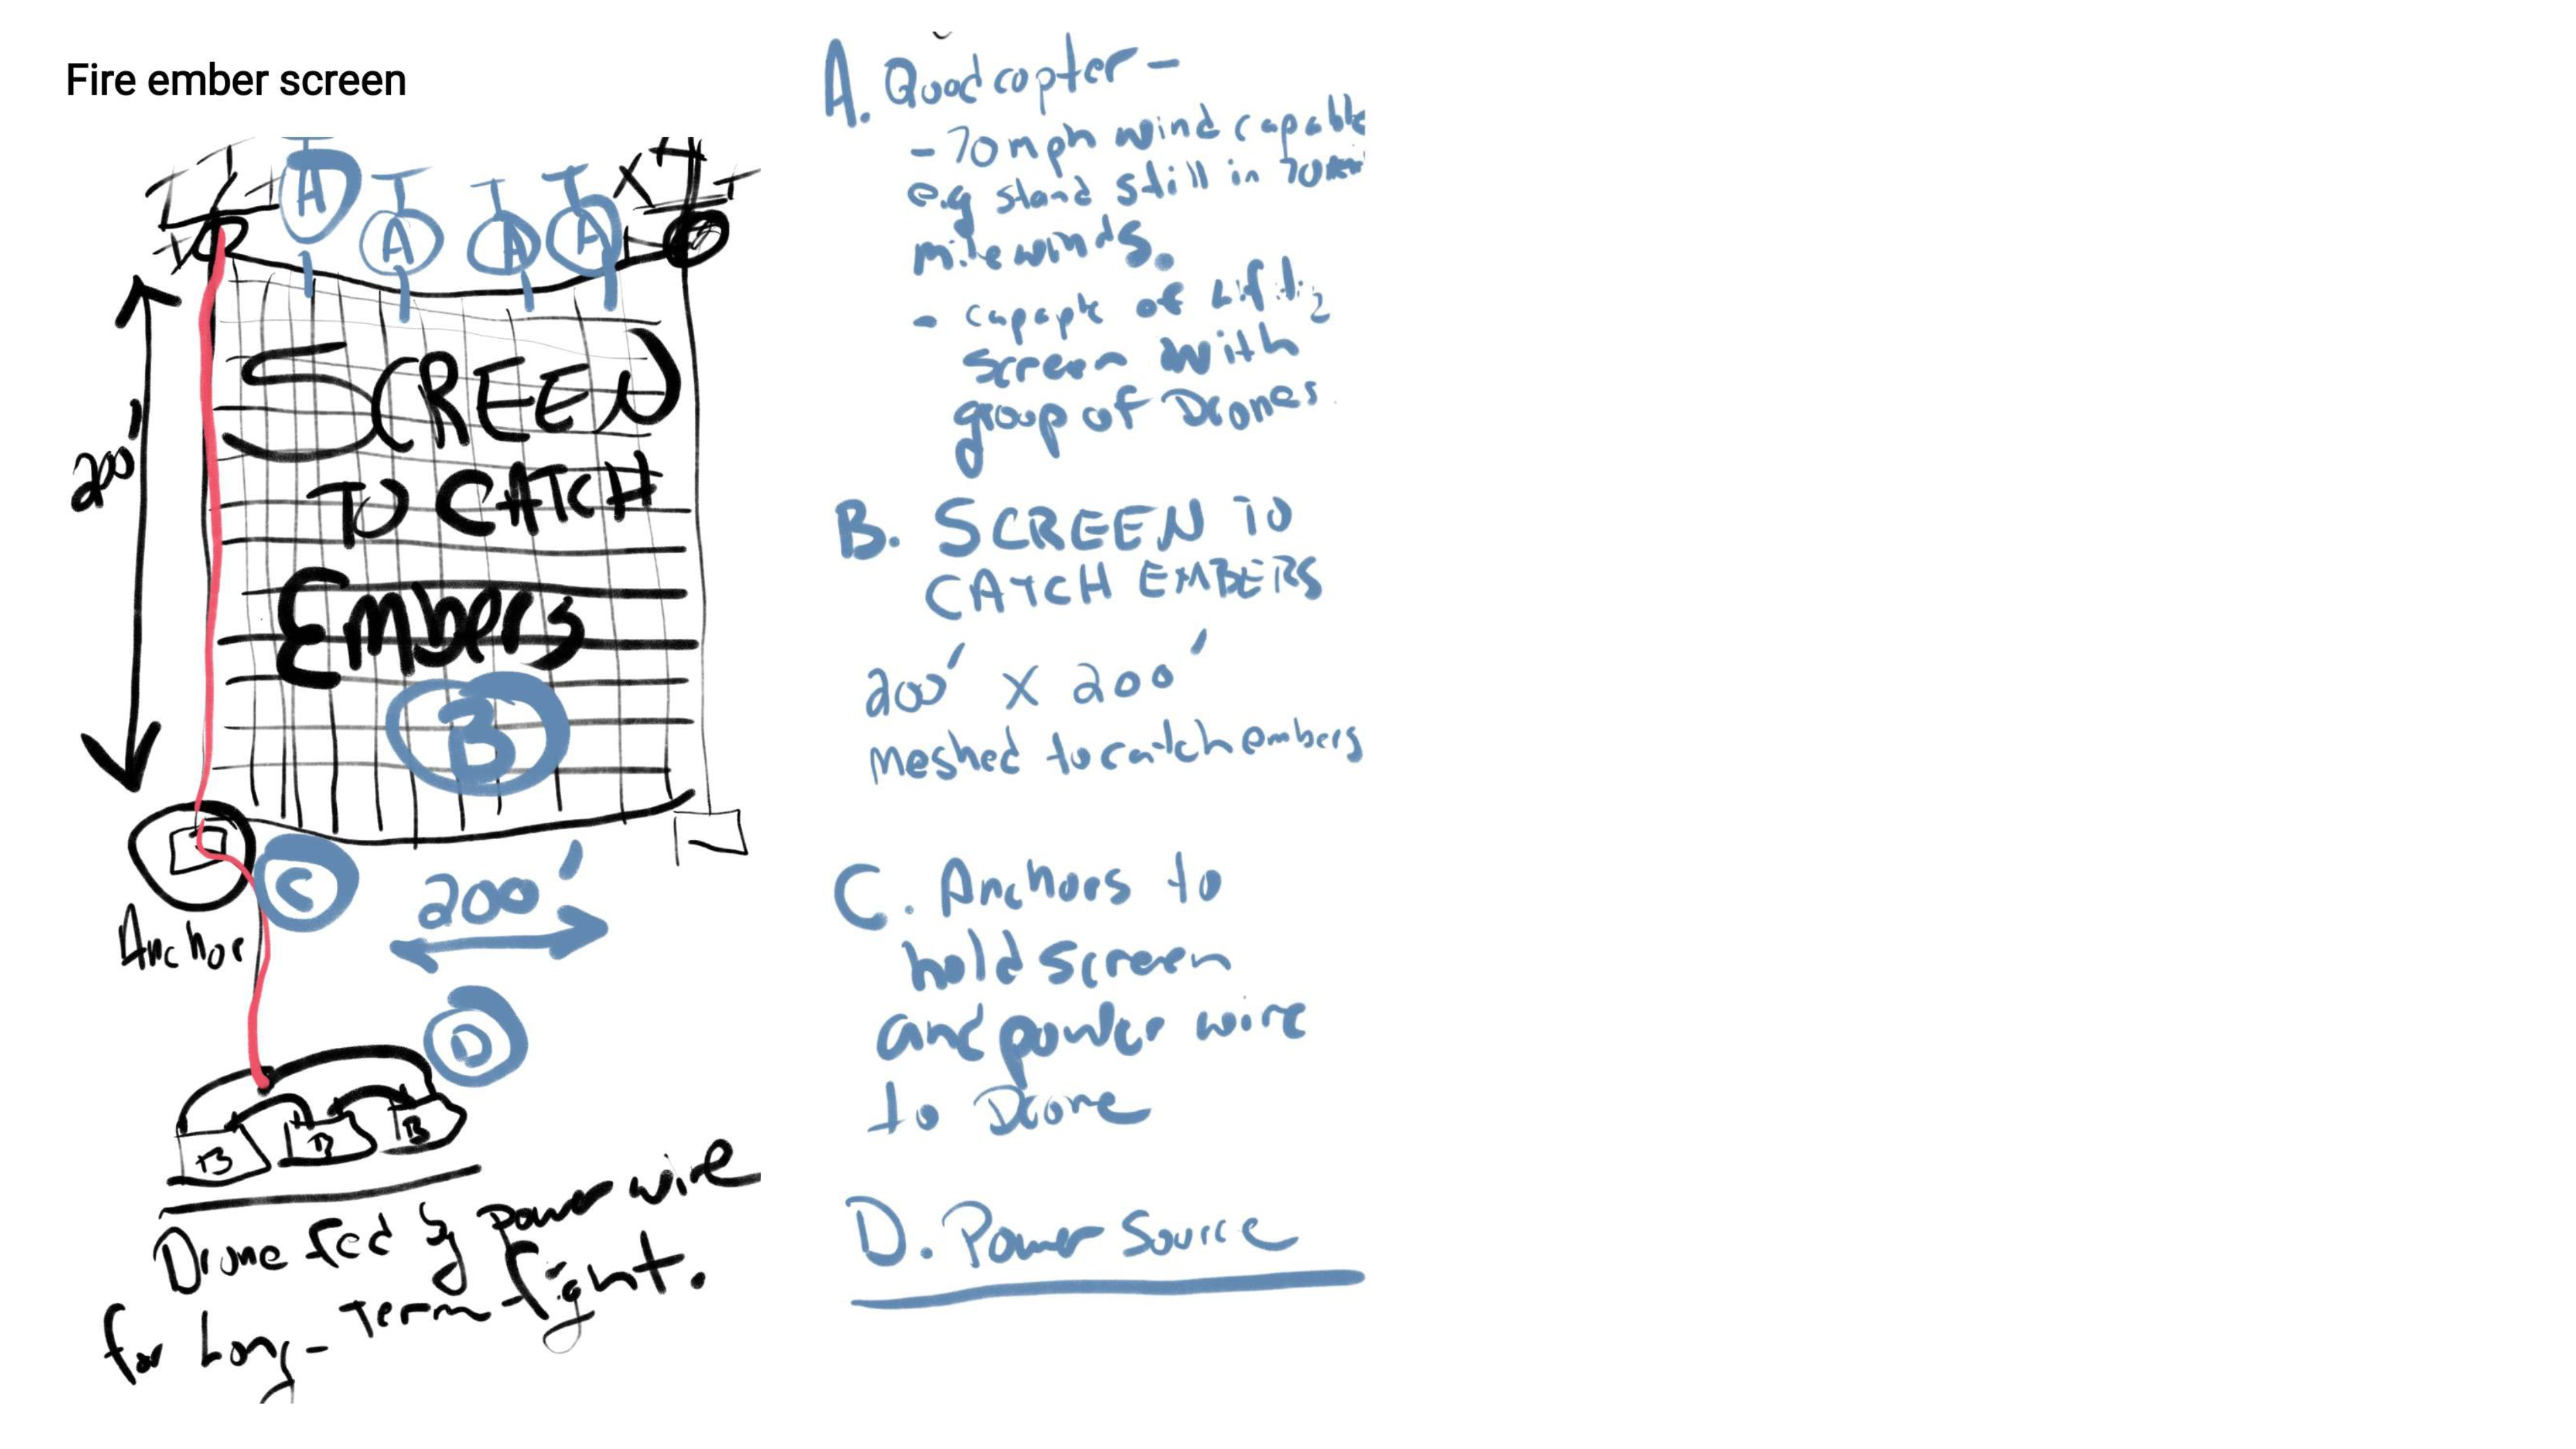 Fire ember screen
A
A
A
A
X
200'
SCREEN
TO CATCH
Embers
B
C
Anchor
200'
D
B
B
B
Drone fed by power wire
for Long-Term flight.
A. Quadcopter -
- 70 mph wind capable
e.g stand still in 70
mile winds.
- of
screen with
group of Drones
B. SCREEN TO
CATCH EMBERS
200' X 200'
meshed to catch embers
C. Anchors to
hold screen
and power wire
to Drone
D. Power Source